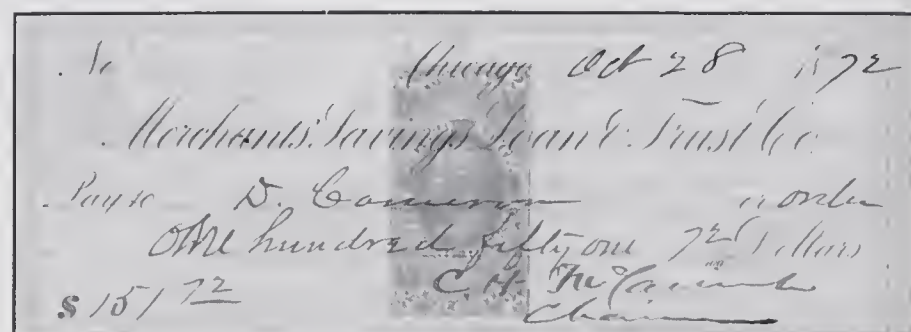 No Chicago Oct 28 1872
Merchants' Savings Loan & Trust Co
Pay to D. Cameron or order
One hundred fifty one 72 Dollars
$151 72 C. H.
Chairman